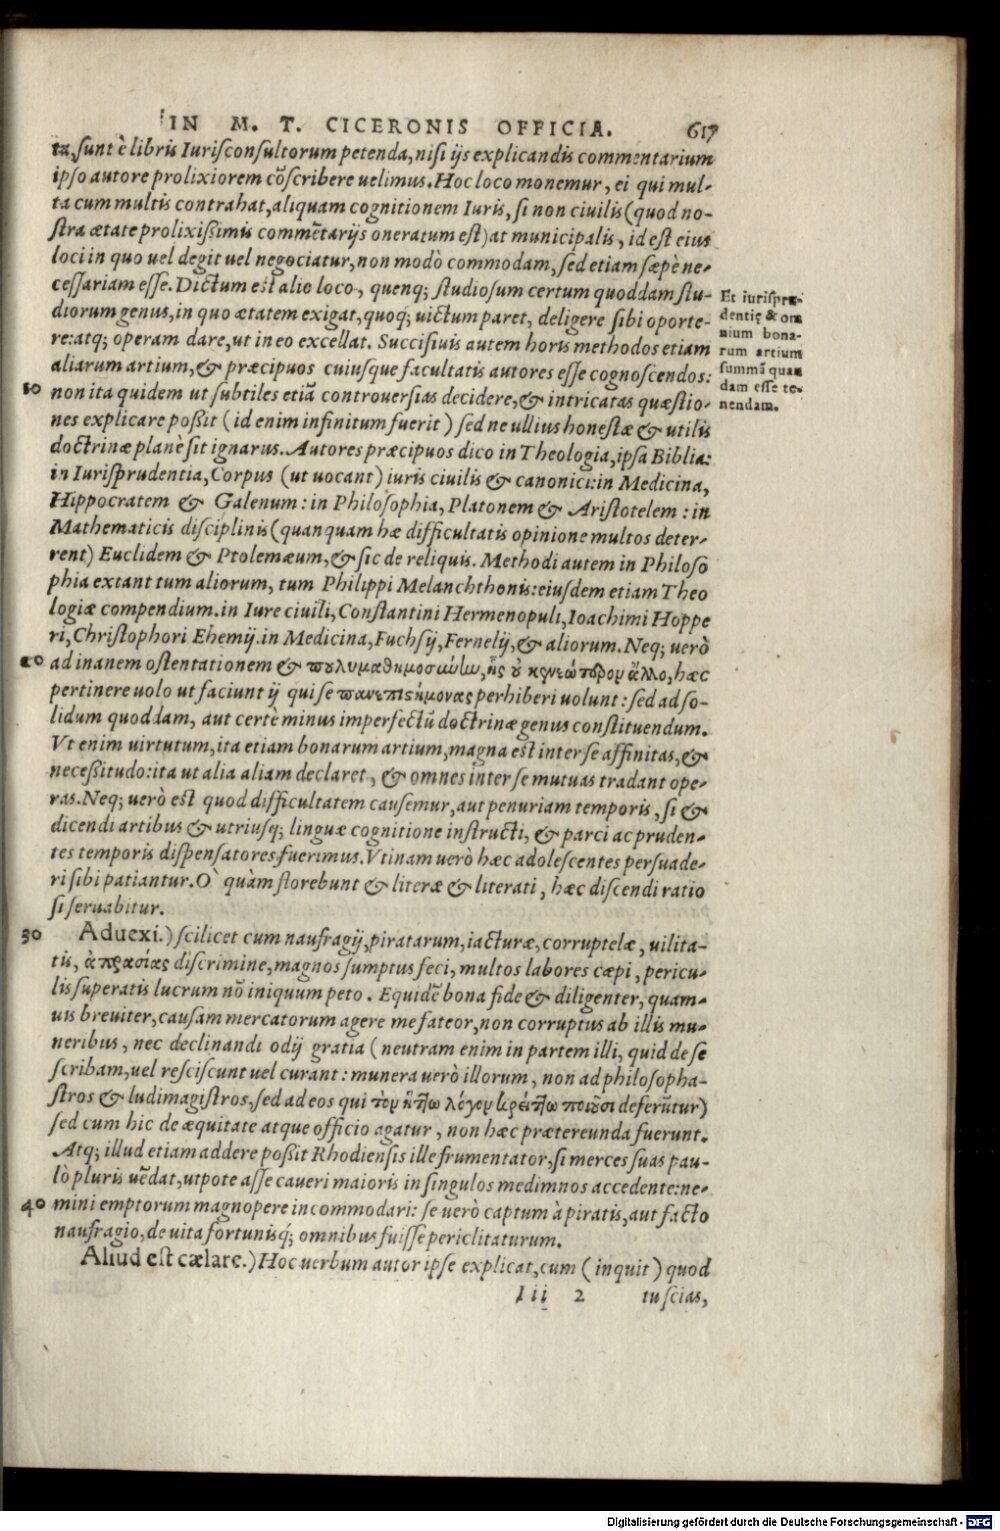 IN M. T. CICERONIS OFFICIA. 617
ta, sunt è libris Iurisconsultorum petenda, nisi ijs explicandis commentarium
ipso autore prolixiorem cōscribere uelimus. Hoc loco monemur, ei qui mul-
ta cum multis contrahat, aliquam cognitionem Iuris, si non ciuilis (quod no-
stra ætate prolixißimis commētarijs oneratum est) at municipalis, id est eius
loci in quo uel degit uel negociatur, non modò commodam, sed etiam sæpè ne-
cessariam esse. Dictum est alio loco, quenq; studiosum certum quoddam stu-
diorum genus, in quo ætatem exigat, quoq; uictum paret, deligere sibi oporte-
re: atq; operam dare, ut in eo excellat. Succisiuis autem horis methodos etiam
aliarum artium, & præcipuos cuiusque facultatis autores esse cognoscendos:
10 non ita quidem ut subtiles etiā controuersias decidere, & intricatas quæstio-
nes explicare poßit (id enim infinitum fuerit) sed ne ullius honestæ & utilis
doctrinæ planè sit ignarus. Autores præcipuos dico in Theologia, ipsa Biblia:
in Iurisprudentia, Corpus (ut uocant) iuris ciuilis & canonici: in Medicina,
Hippocratem & Galenum: in Philosophia, Platonem & Aristotelem: in
Mathematicis disciplinis (quanquam hæ difficultatis opinione multos deter-
rent) Euclidem & Ptolemæum, & sic de reliquis. Methodi autem in Philoso
phia extant tum aliorum, tum Philippi Melanchthonis: eiusdem etiam Theo
logiæ compendium. in Iure ciuili, Constantini Hermenopuli, Ioachimi Hoppe
ri, Christophori Ehemij. in Medicina, Fuchsij, Fernelij, & aliorum. Neq; uerò
20 ad inanem ostentationem & πολυμαθημοσιώίω, ἧς ὐ κενεώτορομ ἄλλο, hæc
pertinere uolo ut faciunt ij qui se πανεπιστήμονας perhiberi uolunt: sed ad so-
lidum quoddam, aut certè minus imperfectū doctrinæ genus constituendum.
Vt enim uirtutum, ita etiam bonarum artium, magna est inter se affinitas, &
neceßitudo: ita ut alia aliam declaret, & omnes inter se mutuas tradant ope-
ras. Neq; uerò est quod difficultatem causemur, aut penuriam temporis, si &
dicendi artibus & utriusq; linguæ cognitione instructi, & parci ac pruden-
tes temporis dispensatores fuerimus. Vtinam uerò hæc adolescentes persuade-
ri sibi patiantur. O` quàm florebunt & literæ & literati, hæc discendi ratio
si seruabitur.
30 Aduexi.) scilicet cum naufragij, piratarum, iacturæ, corruptelæ, uilita-
tis, ἀπρασίας discrimine, magnos sumptus feci, multos labores cæpi, pericu-
lis superatis lucrum nō iniquum peto. Equidē bona fide & diligenter, quam-
uis breuiter, causam mercatorum agere me fateor, non corruptus ab illis mu-
neribus, nec declinandi odij gratia (neutram enim in partem illi, quid de se
scribam, uel resciscunt uel curant: munera uerò illorum, non ad philosopha-
stros & ludimagistros, sed ad eos qui τὸμ ἥττω λόγομ κρείττω ποιοῦσι deferūtur)
sed cum hic de æquitate atque officio agatur, non hæc prætereunda fuerunt.
Atq; illud etiam addere poßit Rhodiensis ille frumentator, si merces suas pau-
lò pluris uēdat, utpote asse caueri maioris in singulos medimnos accedente: ne-
40 mini emptorum magnopere incommodari: se uerò captum à piratis, aut facto
naufragio, de uita fortunisq́; omnibus fuisse periclitaturum.
Aliud est cælare.) Hoc uerbum autor ipse explicat, cum (inquit) quod
Iii 2 tu scias,
Et iurispru-
dentię & om
nium bona-
rum artium
summā quan
dam esse te-
nendam.
Digitalisierung gefördert durch die Deutsche Forschungsgemeinschaft - DFG